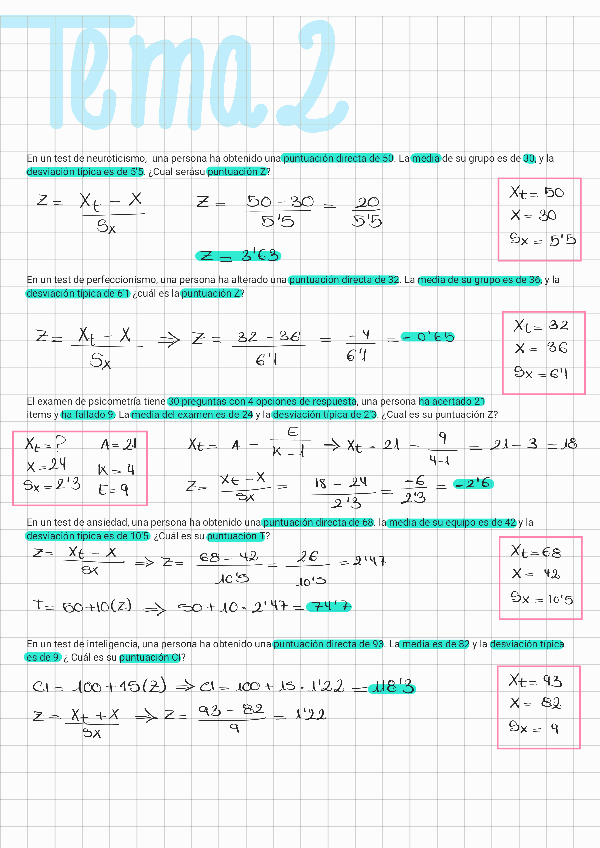 Tema 2
En un test de neuroticismo, una persona ha obtenido una puntuación directa de 50. La media de su grupo es de 30, y la
desviación típica es de 5'5. ¿Cual serásu puntuación Z?
Z = Xt - X / Sx Z = 50 - 30 / 5'5 = 20 / 5'5
Z = 3'63
Xt = 50
X = 30
Sx = 5'5
En un test de perfeccionismo, una persona ha alterado una puntuación directa de 32. La media de su grupo es de 36, y la
desviación típica de 6'1 ¿cuál es la puntuación Z?
Z = Xt - X / Sx => Z = 32 - 36 / 6'1 = -4 / 6'1 = -0'65
Xt = 32
X = 36
Sx = 6'1
El examen de psicometría tiene 30 preguntas con 4 opciones de respuesta, una persona ha acertado 21
items y ha fallado 9. La media del examen es de 24 y la desviación típica de 2'3. ¿Cual es su puntuación Z?
Xt = ? A = 21
X = 24 K = 4
Sx = 2'3 E = 9
Xt = A - E / K - 1 => Xt = 21 - 9 / 4-1 = 21 - 3 = 18
Z = Xt - X / Sx = 18 - 24 / 2'3 = -6 / 2'3 = -2'6
En un test de ansiedad, una persona ha obtenido una puntuación directa de 68. la media de su equipo es de 42 y la
desviación típica es de 10'5 ¿Cuál es su puntuación T?
Z = Xt - X / Sx => Z = 68 - 42 / 10'5 = 26 / 10'5 = 2'47
T = 50 + 10(Z) => 50 + 10 · 2'47 = 74'7
Xt = 68
X = 42
Sx = 10'5
En un test de inteligencia, una persona ha obtenido una puntuación directa de 93. La media es de 82 y la desviación típica
es de 9 ¿ Cuál es su puntuación CI?
CI = 100 + 15(Z) => CI = 100 + 15 · 1'22 = 118'3
Z = Xt + X / Sx => Z = 93 - 82 / 9 = 1'22
Xt = 93
X = 82
Sx = 9